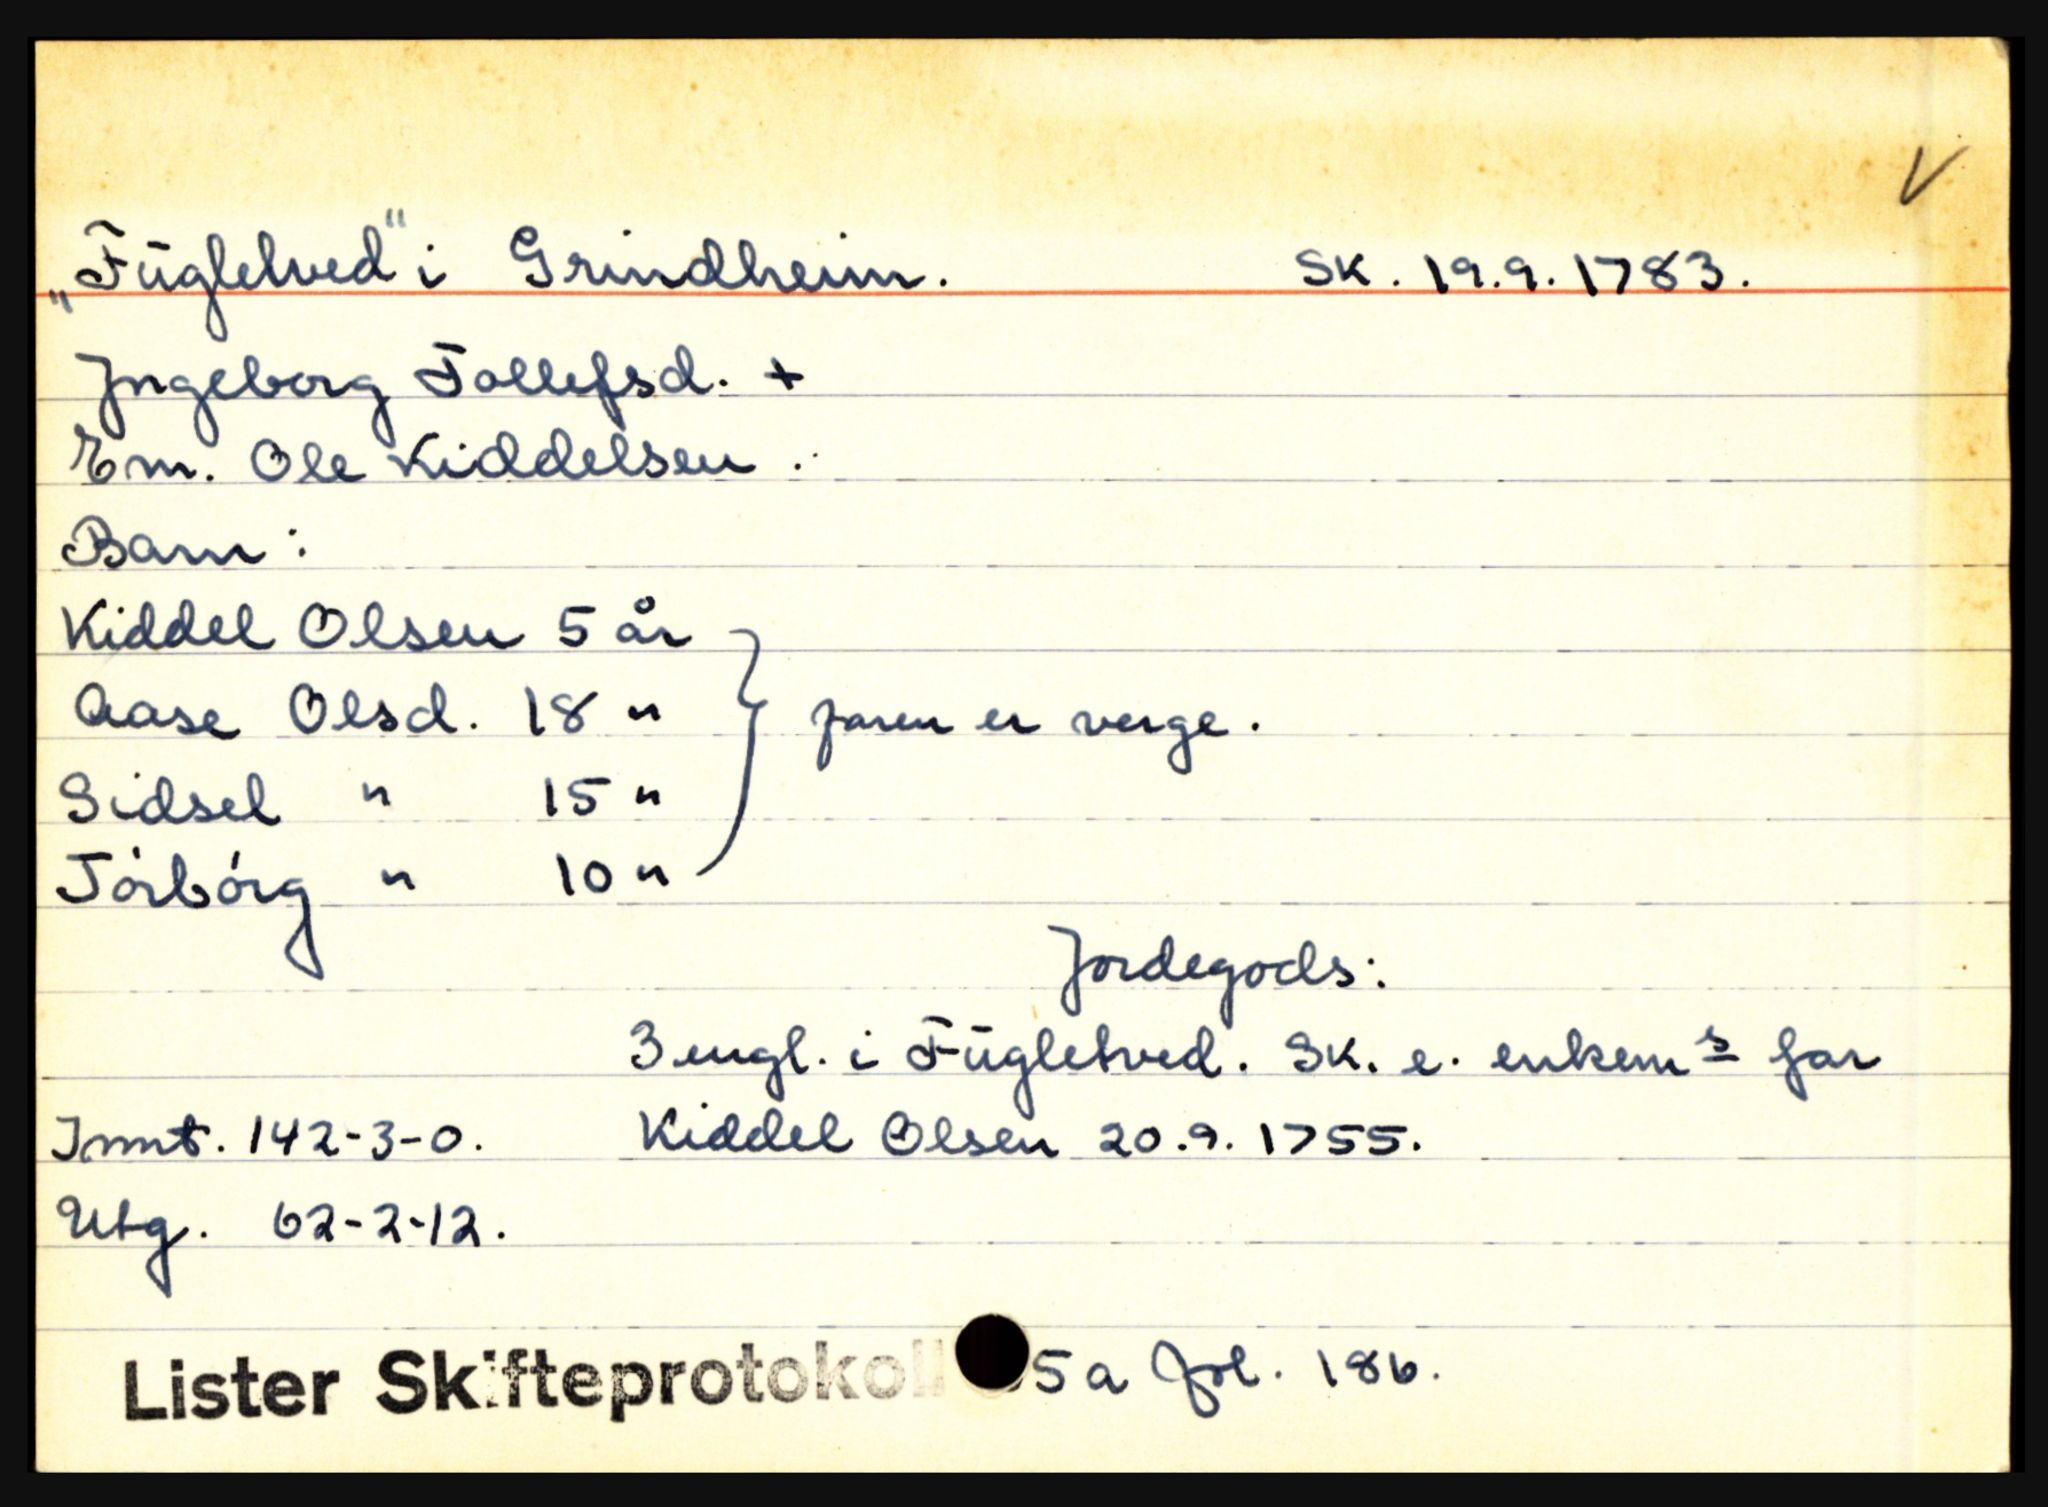 V
„Fūgletved“ i Grindheim. Sk. 19.9.1783.
Ingeborg Tollefsd. +
Em. Ole Kiddelsen.
Barn:
Kiddel Olsen 5 år
Aase Olsd. 18 " } faren er verge.
Sidsel " 15 "
Tórbórg " 10 "
Jordegods:
3 engl. i Fūgletved. Sk. e. enkem s far
Innt. 142-3-0. Kiddel Olsen 20.9.1755.
Utg. 62-2-12.
Lister Skifteprotokoll 5a fol. 186.